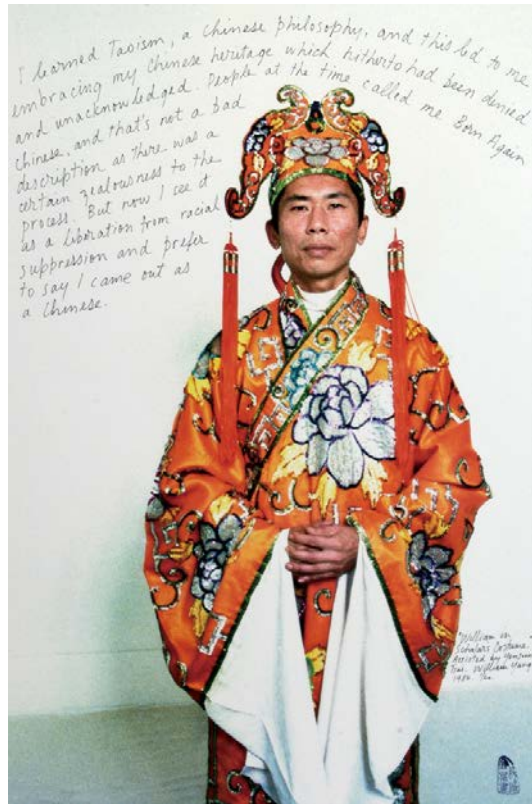 I learned Taoism, a Chinese philosophy, and this led to me
embracing my Chinese heritage which hitherto had been denied
and unacknowledged. People at the time called me Born Again
Chinese, and that's not a bad
description as there was a
certain zealousness to the
process. But now I see it
as a liberation from racial
suppression and prefer
to say I came out as
a Chinese.
"William in
Scholars Costume.
Assisted by
William Yang
1984.